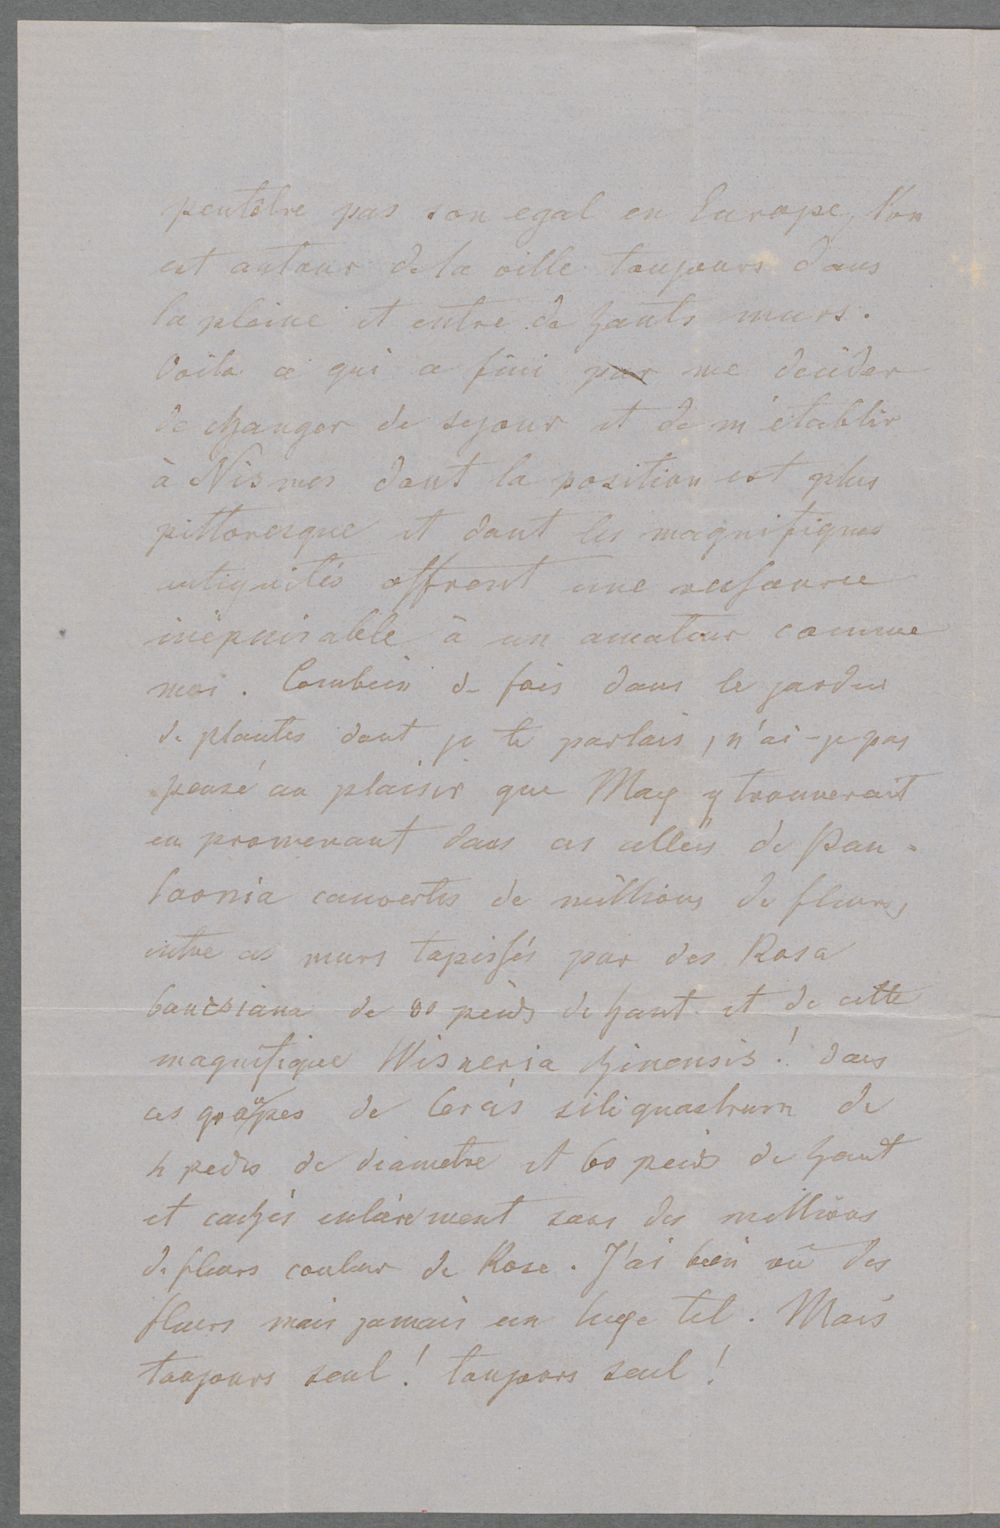 peutêtre pas son egal en Europe, l'on
est autour de la ville toujours dans
la plaine et entre de hauts murs.
Voila ce qui a fini par me decider
de changer de sejour et de m'etablir
à Nismes dont la position est plus
pittoresque et dont les magnifiques
antiquités offrent une ressource
inépuisable à un amateur comme
moi. Combien de fois dans le jardin
de plantes dont je te parlais, n'ai-je pas
pensé au plaisir que May y trouverait
en promenant dans ces allées de Pau-
lovnia couvertes de millions de fleurs,
entre ces murs tapissés par des Rosa
banksiana de 80 pieds de haut et de cette
magnifique Wisneria chinensis! dans
ces groupes de Cercis siliquastrum de
4 pieds de diametre et 60 pieds de haut
et cachés entièrement sous des millions
de fleurs couleur de Rose. J'ai bien vû des
fleurs mais jamais un luxe tel. Mais
toujours seul! toujours seul!